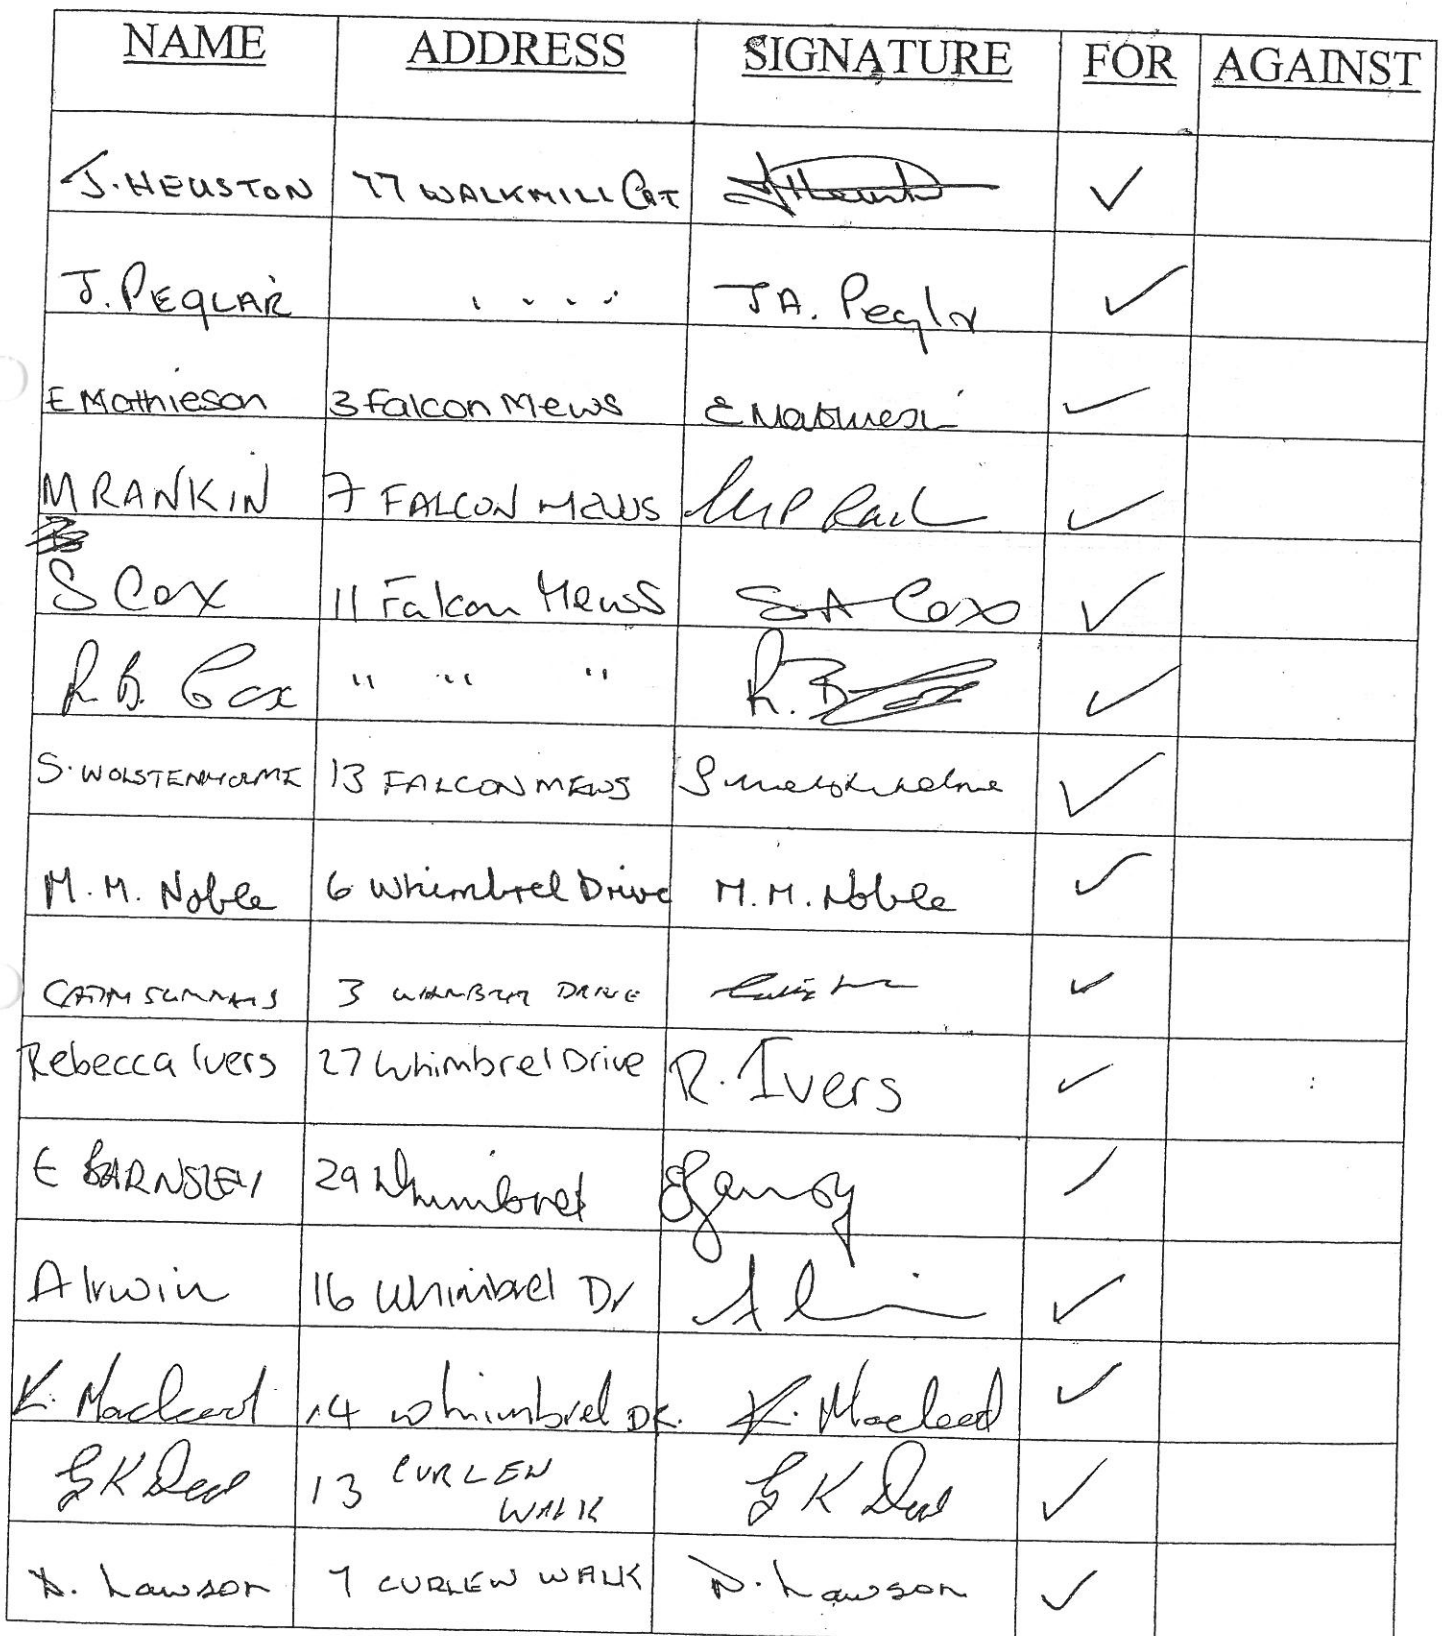 NAME ADDRESS SIGNATURE FOR AGAINST
J. HEUSTON 77 WALKMILL CRT ✓
J. PEGLAR " " " " J A. Peglar ✓
E Mathieson 3 Falcon Mews E Mathieson ✓
M RANKIN 7 FALCON MEWS ✓
S Cox 11 Falcon Mews S A Cox ✓
R. B. Cox " " " R. B. Cox ✓
S. WOLSTENHOLME 13 FALCON MEWS S Wolstenholme ✓
M. M. Noble 6 Whimbrel Drive M. M. Noble ✓
3 WHIMBREL DRIVE ✓
Rebecca Ivers 27 Whimbrel Drive R. Ivers ✓
E BARNSLEY 29 Whimbrel ✓
A Irwin 16 Whimbrel Dr ✓
K. Macleod 14 Whimbrel DR. K. Macleod ✓
G K 13 CURLEW WALK G K ✓
D. Lawson 7 CURLEW WALK D. Lawson ✓